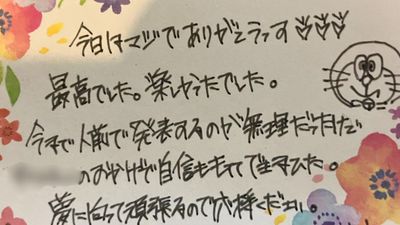 今日はマジでありがとうっす
最高でした。楽しかったでした。
今まで人前で発表するのが無理だったけど
のおかげで自信をもてて生ました。
夢に向って頑張るので応援ください。